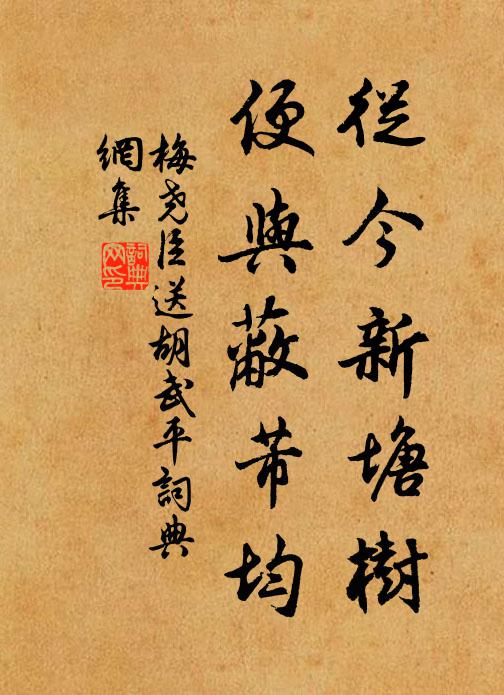 從今新塘樹
便與蔽芾均
梅堯臣送胡武平詞典
網集
詞典
网印